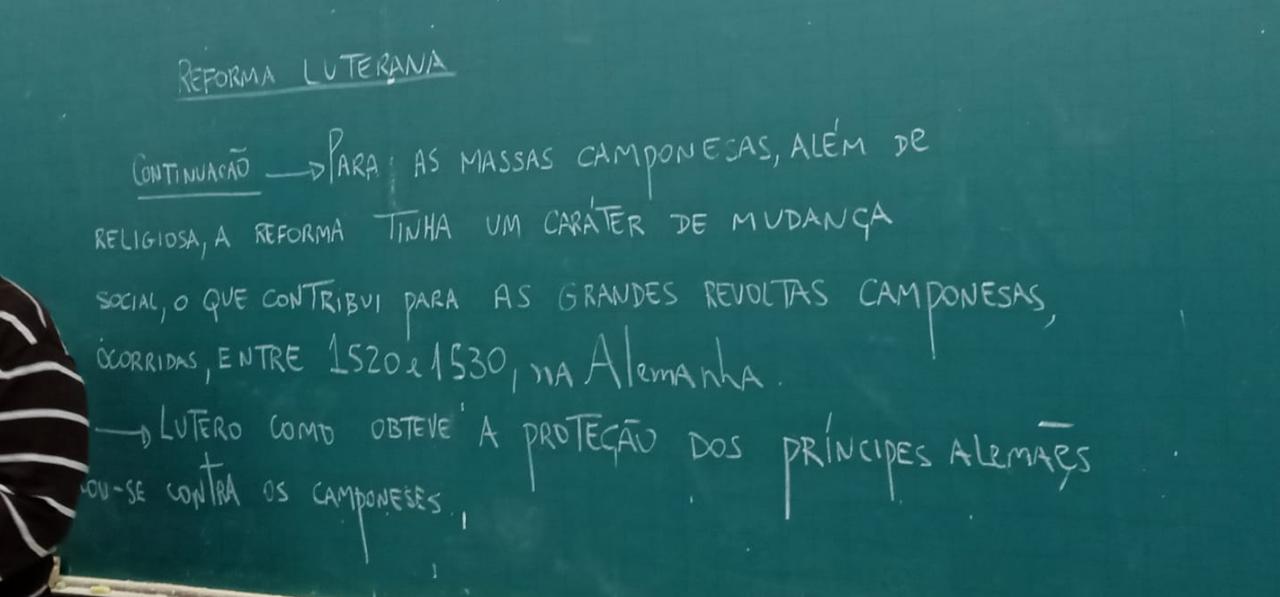 REFORMA LUTERANA
CONTINUAÇÃO → PARA AS MASSAS CAMPONESAS, ALÉM DE
RELIGIOSA, A REFORMA TINHA UM CARÁTER DE MUDANÇA
SOCIAL, O QUE CONTRIBUI PARA AS GRANDES REVOLTAS CAMPONESAS,
OCORRIDAS, ENTRE 1520 e 1530, NA Alemanha.
→ LUTERO COMO OBTEVE A PROTEÇÃO DOS PRÍNCIPES ALEMÃES
OU-SE CONTRA OS CAMPONESES.